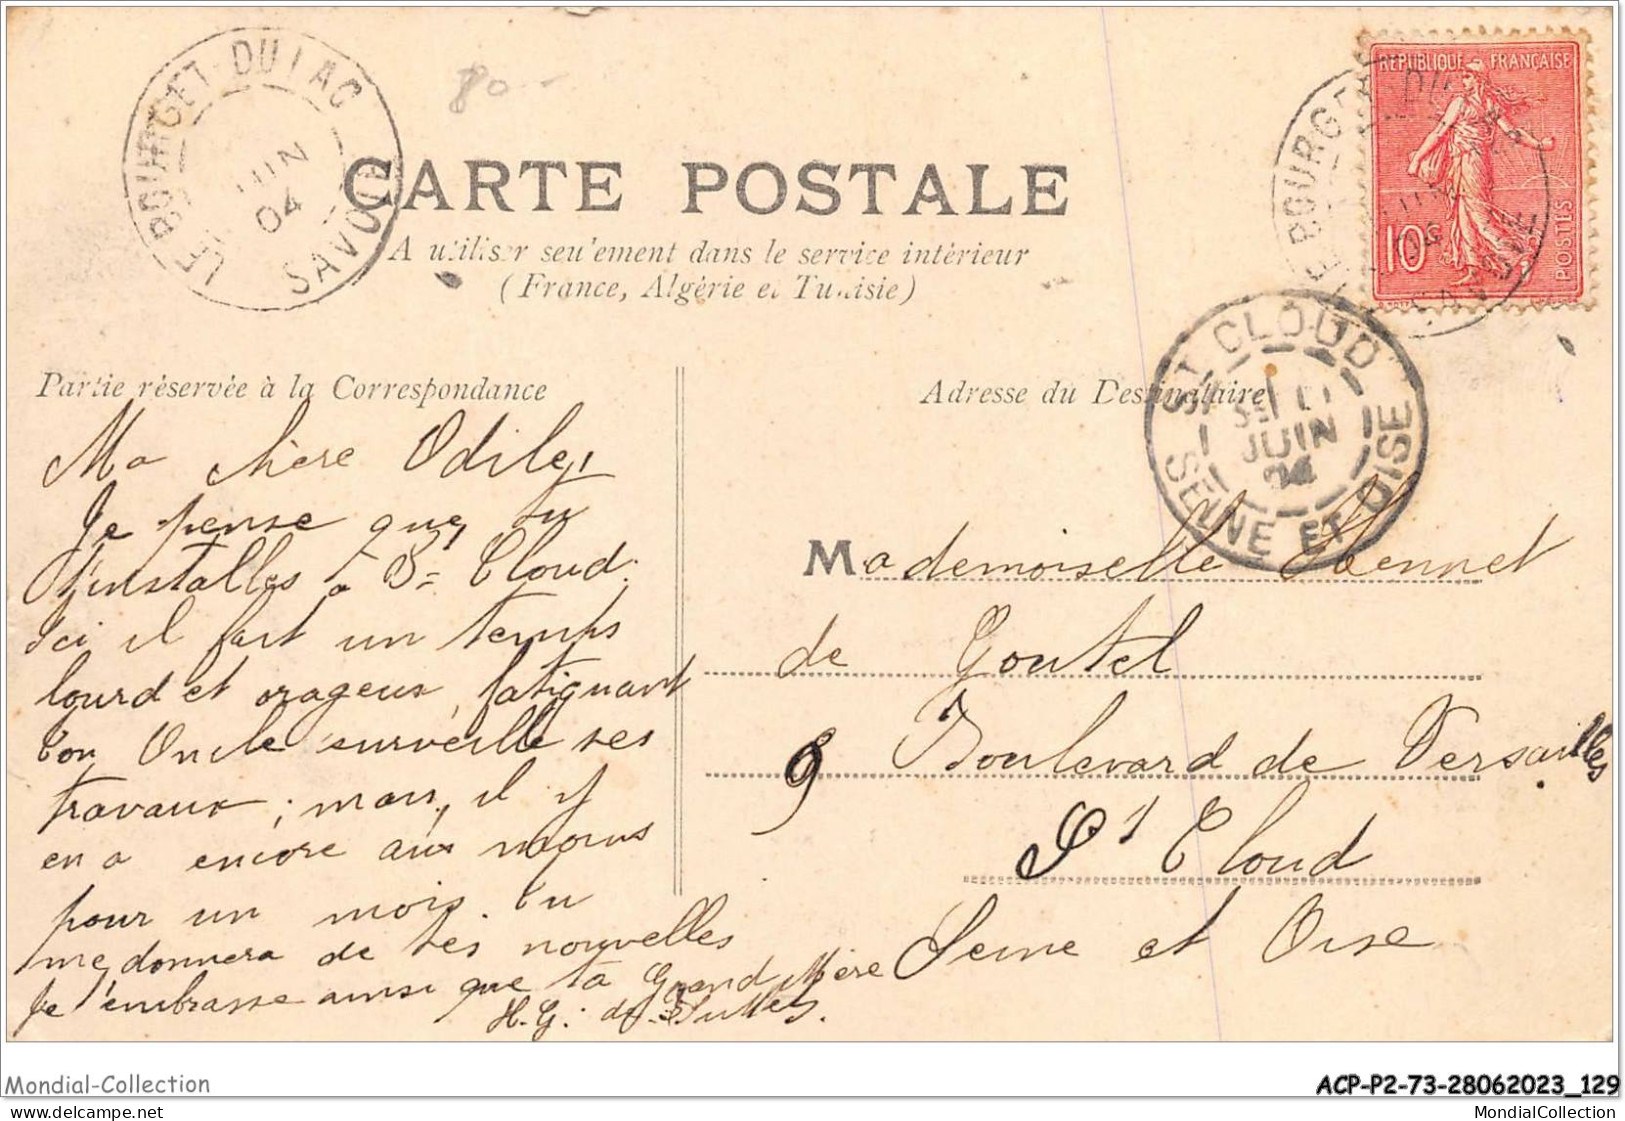 LE BOURGET-DU-LAC
JUIN
04
SAVOIE
80
REPUBLIQUE FRANÇAISE
10c
POSTES
CARTE POSTALE
A utiliser seulement dans le service intérieur
(France, Algérie et Tunisie)
ST CLOUD
JUIN
04
SEINE ET OISE
Partie réservée à la Correspondance
Adresse du Destinataire
Ma chère Odile,
Je pense que, tu
t'installes à St Cloud.
Ici il fait un temps
lourd et orageux, fatiguant
ton Oncle surveille ses
travaux; mais, il y
en a encore au moins
pour un mois. Tu
me donnera de tes nouvelles
Je t'embrasse ainsi que ta Grand Mère
H.G.: de
Mademoiselle
de Goutel
9 Boulevard de Versailles
St Cloud
Seine et Oise
Mondial-Collection
ACP-P2-73-28062023_129
Mondial-Collection.com
MondialCollection